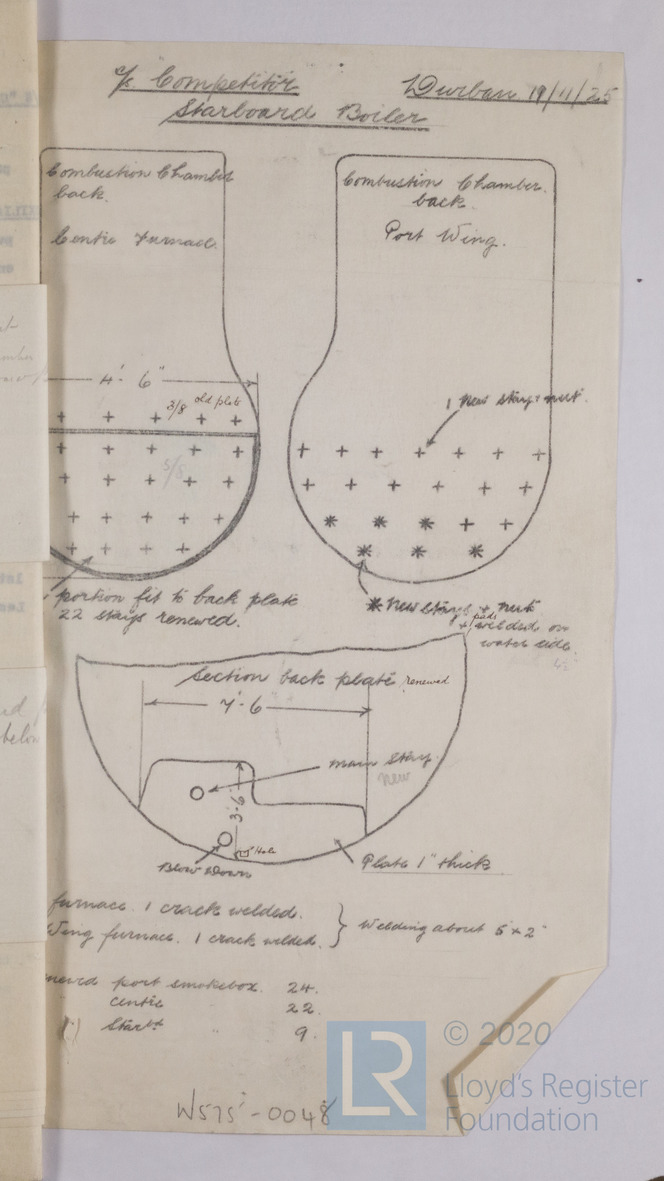 S/s "Competitor"
Durban 19/11/25
Starboard Boiler
Combustion Chamber
back.
Centre Furnace.
Combustion Chamber.
back.
Port Wing.
4'- 6"
3/8 old plate
5/8
1 New stay & nut.
portion fit to back plate
22 stays renewed.
* New stays & nut
& pads
welded on
water side
Section back plate renewed
7'-6"
main stay
new
3'-6"
Hole
Blow Down
Plate 1" thick
furnace. 1 crack welded.
Wing furnace. 1 crack welded.
Welding about 5" x 2"
port smokebox. 24.
centre 22.
Starbd 9.
W575-0048
LR
© 2020
Lloyd's Register
Foundation